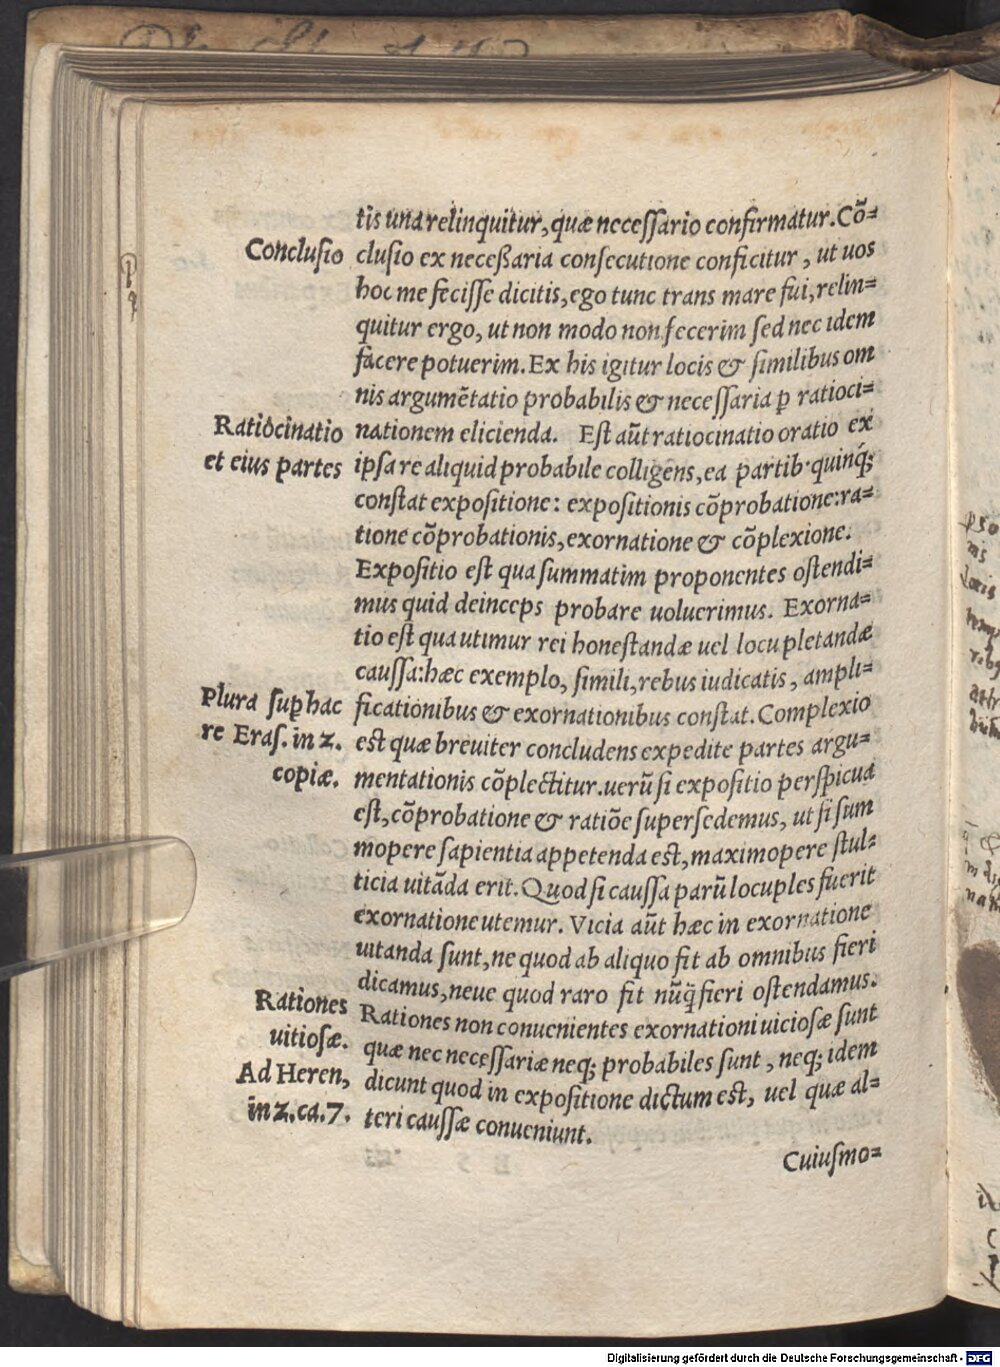 tis una relinquitur, quæ necessario confirmatur. Cõ=
Conclusio
clusio ex neceßaria consecutione conficitur, ut uos
hoc me fecisse dicitis, ego tunc trans mare fui, relin=
quitur ergo, ut non modo non fecerim sed nec idem
facere potuerim. Ex his igitur locis & similibus om
nis argumẽtatio probabilis & necessaria ꝑ ratioci=
Ratiocinatio
nationem elicienda. Est aũt ratiocinatio oratio ex
et eius partes
ipsa re aliquid probabile colligens, ea partib. quinq́;
constat expositione: expositionis cõprobatione: ra=
tione cõprobationis, exornatione & cõplexione.
Expositio est qua summatim proponentes ostendi=
mus quid deinceps probare uoluerimus. Exorna=
tio est qua utimur rei honestandæ uel locupletandæ
caussa: hæc exemplo, simili, rebus iudicatis, ampli=
Plura suꝑ hac
ficationibus & exornationibus constat. Complexio
re Eras. in 2.
est quæ breuiter concludens expedite partes argu=
copiæ.
mentationis cõplectitur. uerũ si expositio perspicua
est, cõprobatione & ratiõe supersedemus, ut si sum
mopere sapientia appetenda est, maximopere stul=
ticia uitãda erit. Quod si caussa parũ locuples fuerit
exornatione utemur. Vicia aũt hæc in exornatione
uitanda sunt, ne quod ab aliquo fit ab omnibus fieri
dicamus, neue quod raro fit nũq̃ fieri ostendamus.
Rationes
Rationes non conuenientes exornationi uiciosæ sunt
uitiosæ.
quæ nec necessariæ neq; probabiles sunt, neq; idem
Ad Heren,
dicunt quod in expositione dictum est, uel quæ al=
in 2. ca. 7.
teri caussæ conueniunt.
Cuiusmo=
Digitalisierung gefördert durch die Deutsche Forschungsgemeinschaft - DFG